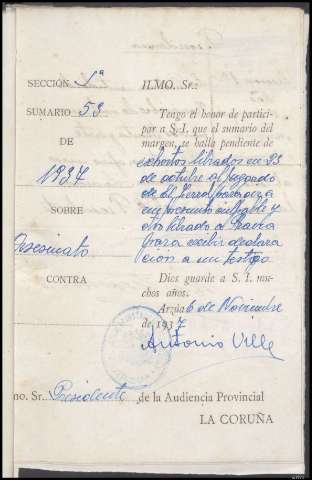 SECCIÓN 1ª
SUMARIO 53
DE
1937
SOBRE
Asesinato
CONTRA
ILMO. Sr.:
Tengo el honor de partici-
par a S. I. que el sumario del
margen, se halla pendiente de
exhortos librados en 23
de octubre al Juzgado
de
un presunto culpable y
otro librado a
para recibir declara
cion a un testigo
Dios guarde a S. I. mu-
chos años.
Arzúa 6 de Noviembre
de 1937
Antonio Ville
mo. Sr. Presidente de la Audiencia Provincial
LA CORUÑA